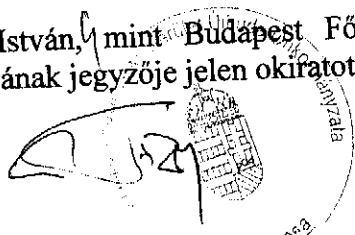 István, mint Budapest Fő
ának jegyzője jelen okiratot